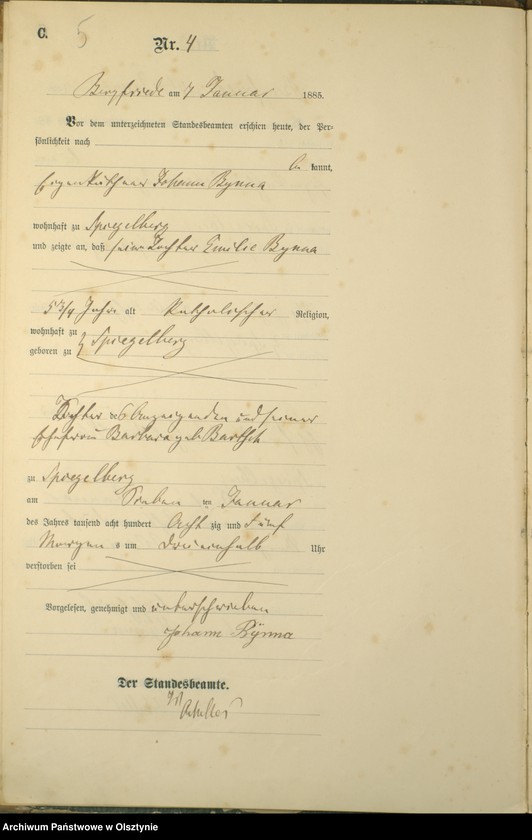 C. 5
Nr. 4
Bergfriede am 7 Januar 1885.
Vor dem unterzeichneten Standesbeamten erschien heute, der Per-
sönlichkeit nach
be kannt,
Eigenkäthner Johann Bynna
wohnhaft zu Spiegelberg
und zeigte an, daß seine Tochter Emilie Bynna
5 3/4 Jahr alt katholischer Religion,
wohnhaft zu
geboren zu } Spiegelberg
Tochter des Anzeigenden und seiner
Ehefrau Barbara geb Bartsch
zu Spiegelberg
am Sieben ten Januar
des Jahres tausend acht hundert Acht zig und Fünf
Morgen s um Uhr
verstorben sei
Vorgelesen, genehmigt und unterschrieben
Johann Bÿnna
Der Standesbeamte.
Archiwum Państwowe w Olsztynie